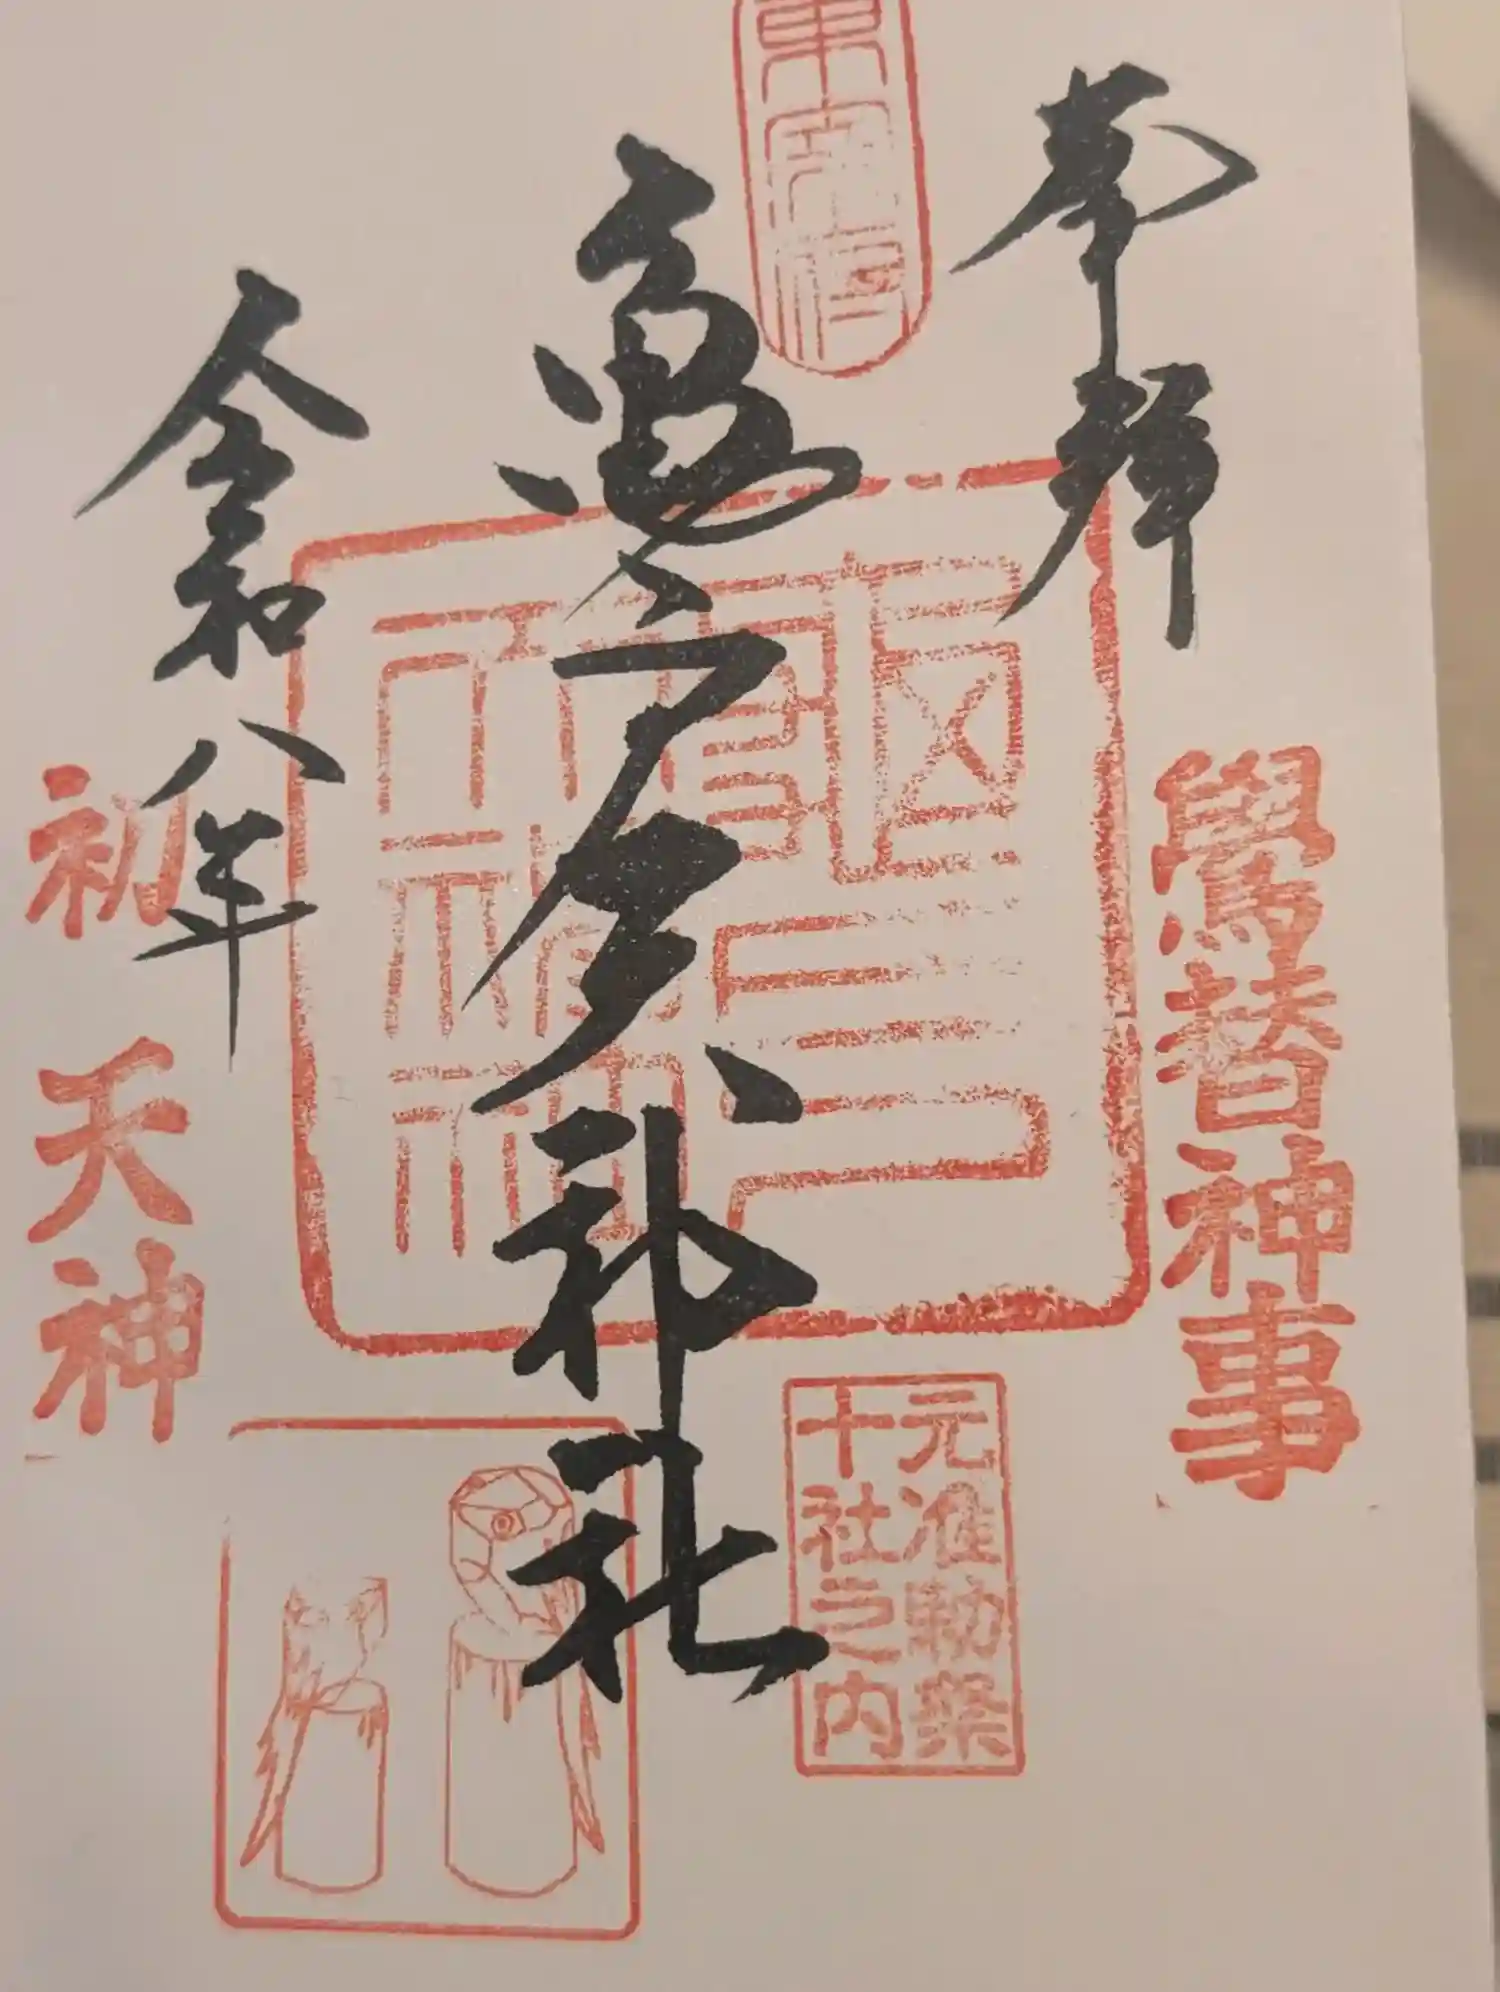 奉拝
鷽替神事
東宰府
亀戸天神社
元准勅祭
十社之内
令和八年
初天神